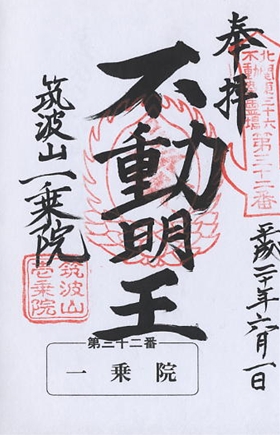 奉拝
北関東三十六
不動尊霊場
第三十二番
平成二十年六月一日
不動明王
筑波山一乗院
筑波山
壱乗院
第三十二番
一乗院